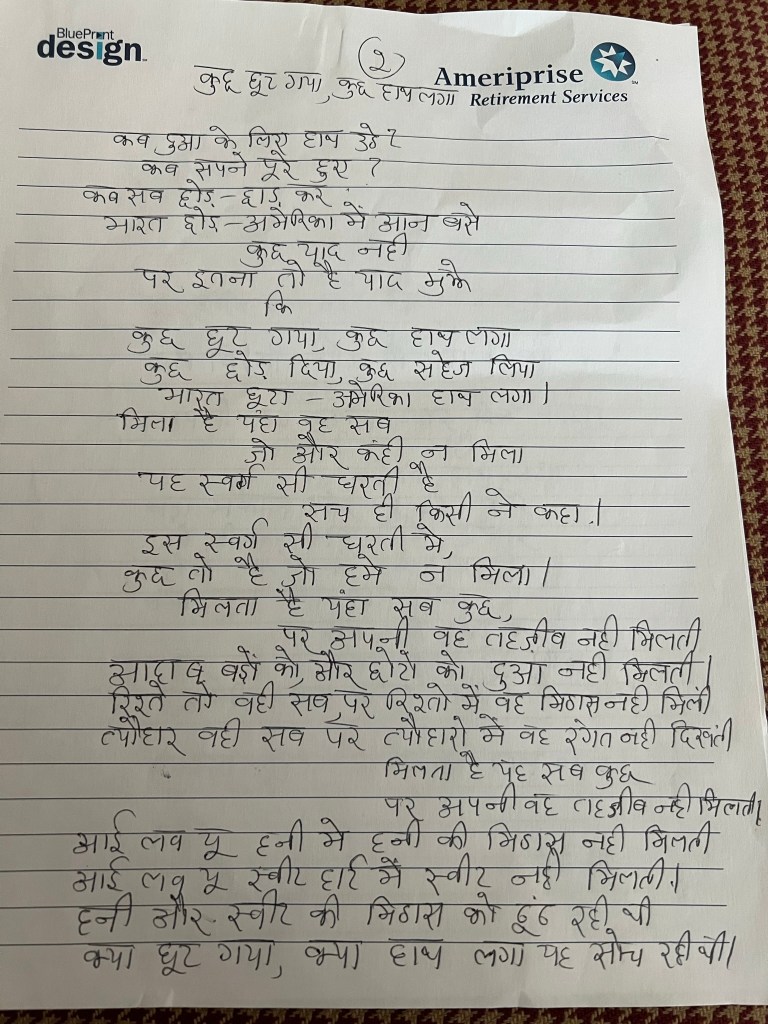 BluePrint
design
2
Ameriprise
Retirement Services
कुछ छूट गया, कुछ हाथ लगा
कब दुआ के लिए हाथ उठे?
कब सपने पूरे हुए ?
कब सब छोड़ - छाड़ कर
भारत छोड़ - अमेरिका में आन बसे
कुछ याद नही
पर इतना तो है याद मुझे
कि
कुछ छूट गया, कुछ हाथ लगा
कुछ छोड़ दिया, कुछ सहेज लिया
भारत छूटा - अमेरिका हाथ लगा।
मिला है यंहा वह सब
जो और कंही न मिला
यह स्वर्ग सी धरती है
सच ही किसी ने कहा।
इस स्वर्ग सी धरती मे,
कुछ तो है जो हमे न मिला।
मिलता है यंहा सब कुछ,
पर अपनी वह तहज़ीब नही मिलती
आदाब बड़ों को, और छोटों को दुआ नही मिलती।
रिश्ते तो वही सब, पर रिश्तो में वह मिठास नही मिली
त्यौहार वही सब पर त्यौहारो में वह रंगत नही दिखती
मिलता है यह सब कुछ
पर अपनी वह तहज़ीब नही मिलती।
आई लव यू हनी मे हनी की मिठास नही मिलती
आई लव यू स्वीट हार्ट में स्वीट नही मिलती।
हनी और स्वीट की मिठास को ढूंढ रही थी
क्या छूट गया, क्या हाथ लगा यह सोच रही थी।